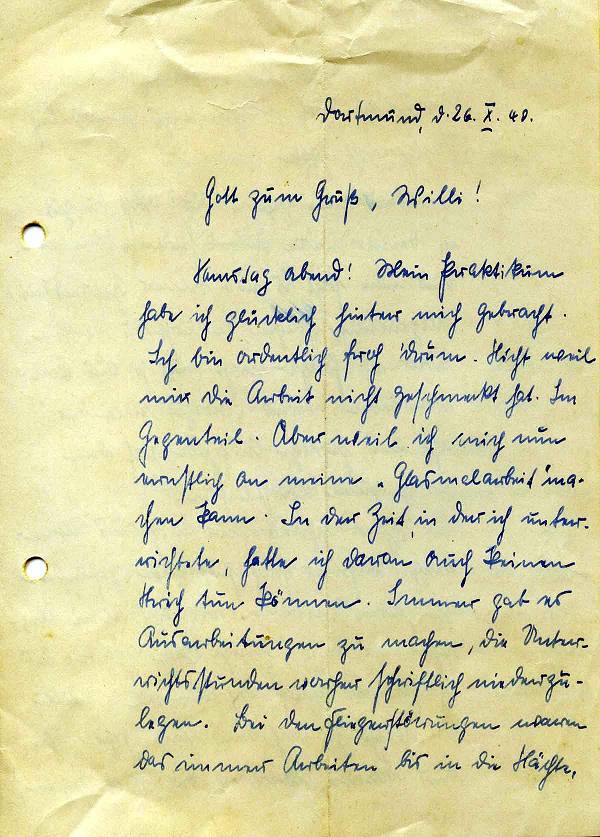 Dortmund, d. 26. X. 40.
Gott zum Gruß, Willi!
Samstag abend! Mein Praktikum
habe ich glücklich hinter mich gebracht.
Ich bin ordentlich froh 'drum. Nicht weil
mir die Arbeit nicht geschmeckt hat. Im
Gegenteil. Aber weil ich mich nun
ernstlich an meine „Glasmalarbeit" ma-
chen kann. In der Zeit, in der ich unter-
richtete, hatte ich daran auch keinen
Strich tun können. Immer gab es
Ausarbeitungen zu machen, die Unter-
richtsstunden vorher schriftlich niederzu-
legen. Bei den Fliegerstörungen waren
das immer Arbeiten bis in die Nächte,